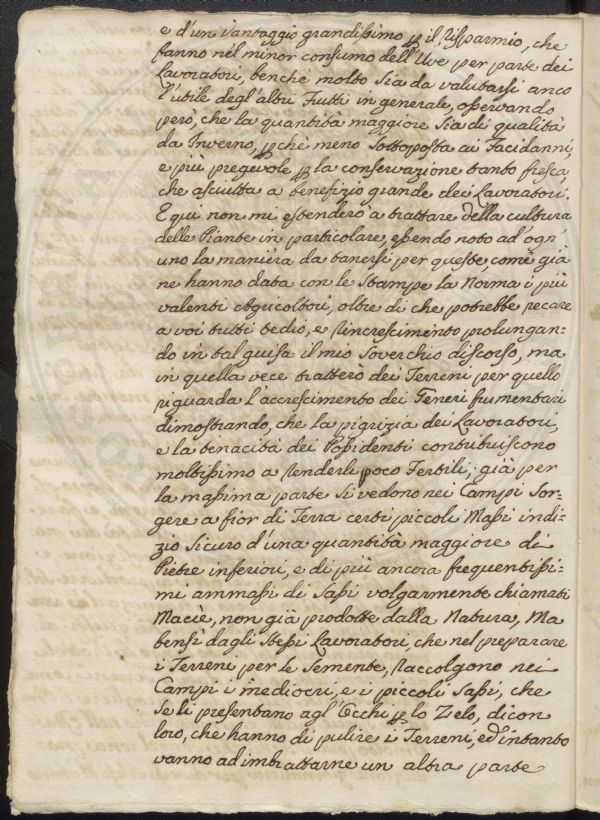 e d'un Vantaggio grandissimo p il Risparmio, che
fanno nel minor consumo dell'Uve per parte dei
Lavoratori, benchè molto sia da valutarsi anco
l'utile degl'altri Frutti in generale, osservando
però, che la quantità maggiore sia di qualità
da Inverno, pchè meno sottoposta ai Facidanni,
e più pregevole p la conservazione tanto fresca,
che asciutta a benefizio grande dei Lavoratori.
E qui non mi estenderò a trattare della cultura
delle Piante in particolare, essendo noto ad'ogn'
uno la maniera da tenersi per queste, come già
ne hanno data con le Stampe la Norma i più
valenti Agricoltori, oltre di che potrebbe recare
a voi tutti tedio, e rincrescimento prolungan=
do in tal guisa il mio soverchio discorso, ma
in quella vece tratterò dei Terreni per quello
riguarda l'accrescimento dei Generi frumentari
dimostrando, che la pigrizia dei Lavoratori,
e la tenacità dei Possidenti contribuiscono
moltissimo a renderli poco Fertili; già per
la massima parte si vedono nei Campi Sor=
gere a fior di Terra certi piccoli Massi indi=
zio sicuro d'una quantità maggiore di
Pietre inferiori, e di più ancora frequentissi=
mi ammassi di Sassi volgarmente chiamati
Macìe, non già prodotte dalla Natura, Ma
bensì dagli stessi Lavoratori, che nel preparare
i Terreni per le Semente, raccolgono nei
Campi i mediocri, e i piccoli Sassi, che
se li presentano agl'Occhi p lo Zelo, dicon
loro, che hanno di pulire i Terreni, ed'intanto
vanno ad imbrattarne un altra parte